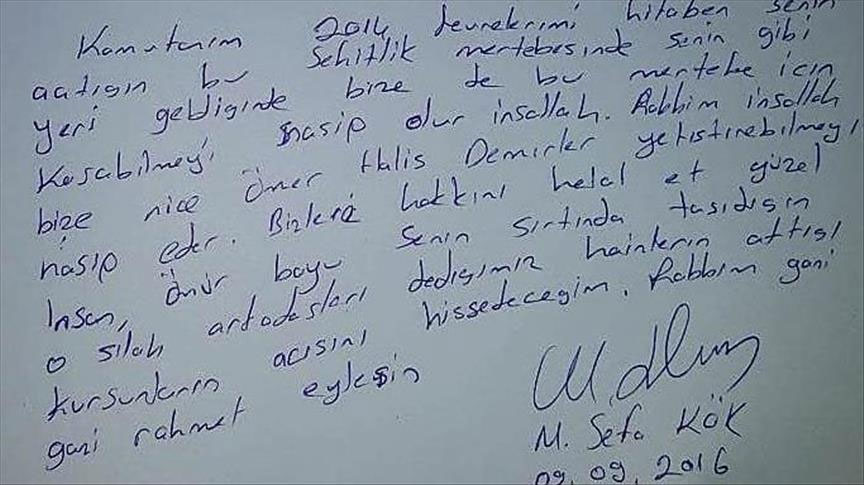 Komutanım 2014 devrelerimi hitaben senin
açtığın bu Şehitlik mertebesinde senin gibi
yeri geldiğinde bize de bu mertebe için
Koşabilmeyi nasip olur inşallah. Rabbim inşallah
bize nice Ömer Halis Demirler yetiştirebilmeyi
nasip eder. Bizlere hakkını helal et güzel
İnsan, Ömür boyu senin sırtında taşıdığın
o silah arkadaşları dediğimiz hainlerin attığı
kurşunların acısını hissedeceğim. Rabbim gani
gani rahmet eylesin
M. Sefa KÖK
09.09.2016